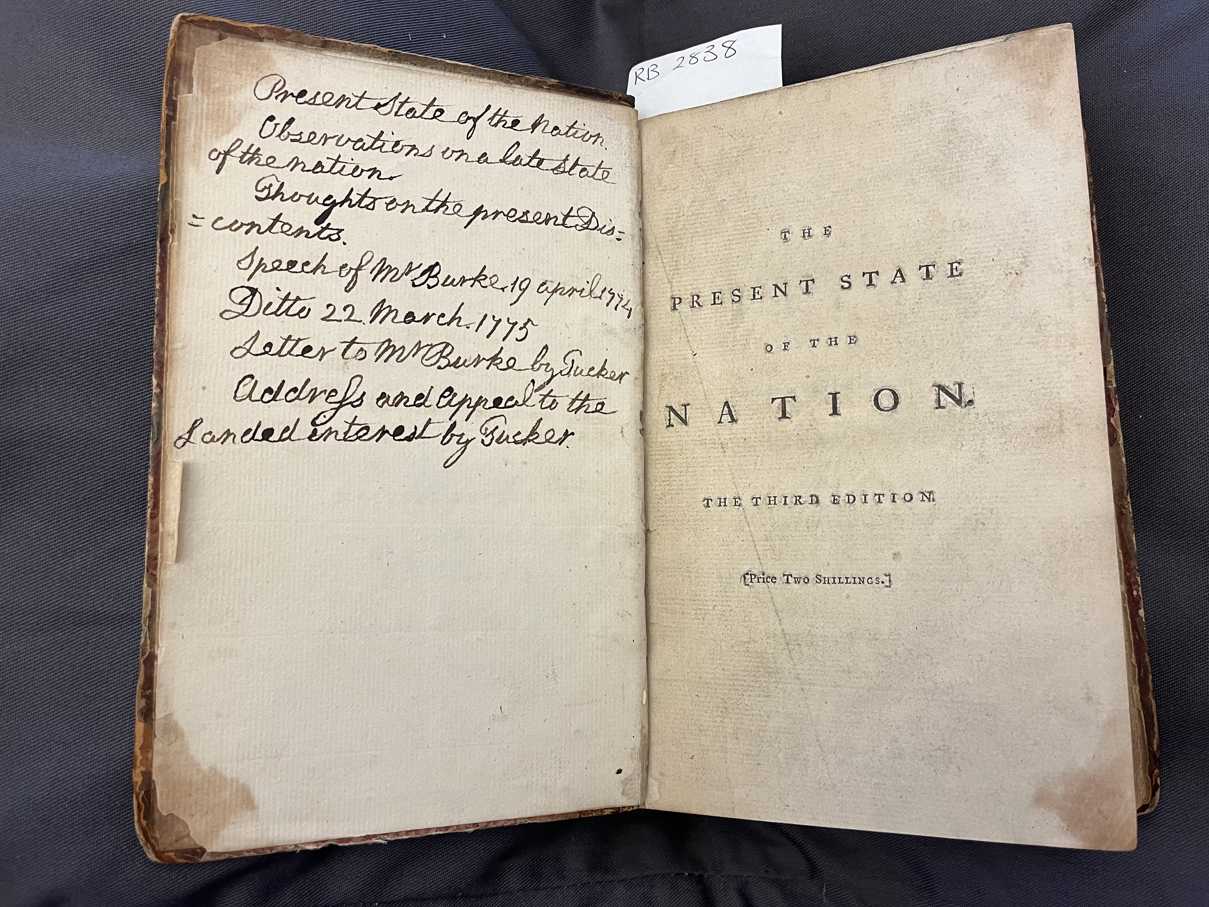 Present State of the Nation.
Observations on a late State
of the nation.
Thoughts on the present Dis=
=contents.
Speech of Mr Burke. 19 april. 1774
Ditto 22. March. 1775
Letter to Mr Burke by Tucker
Addreſs and appeal to the
Landed interest by Tucker.
RB 2838
THE
PRESENT STATE
OF THE
NATION.
THE THIRD EDITION.
[Price TWO SHILLINGS.]